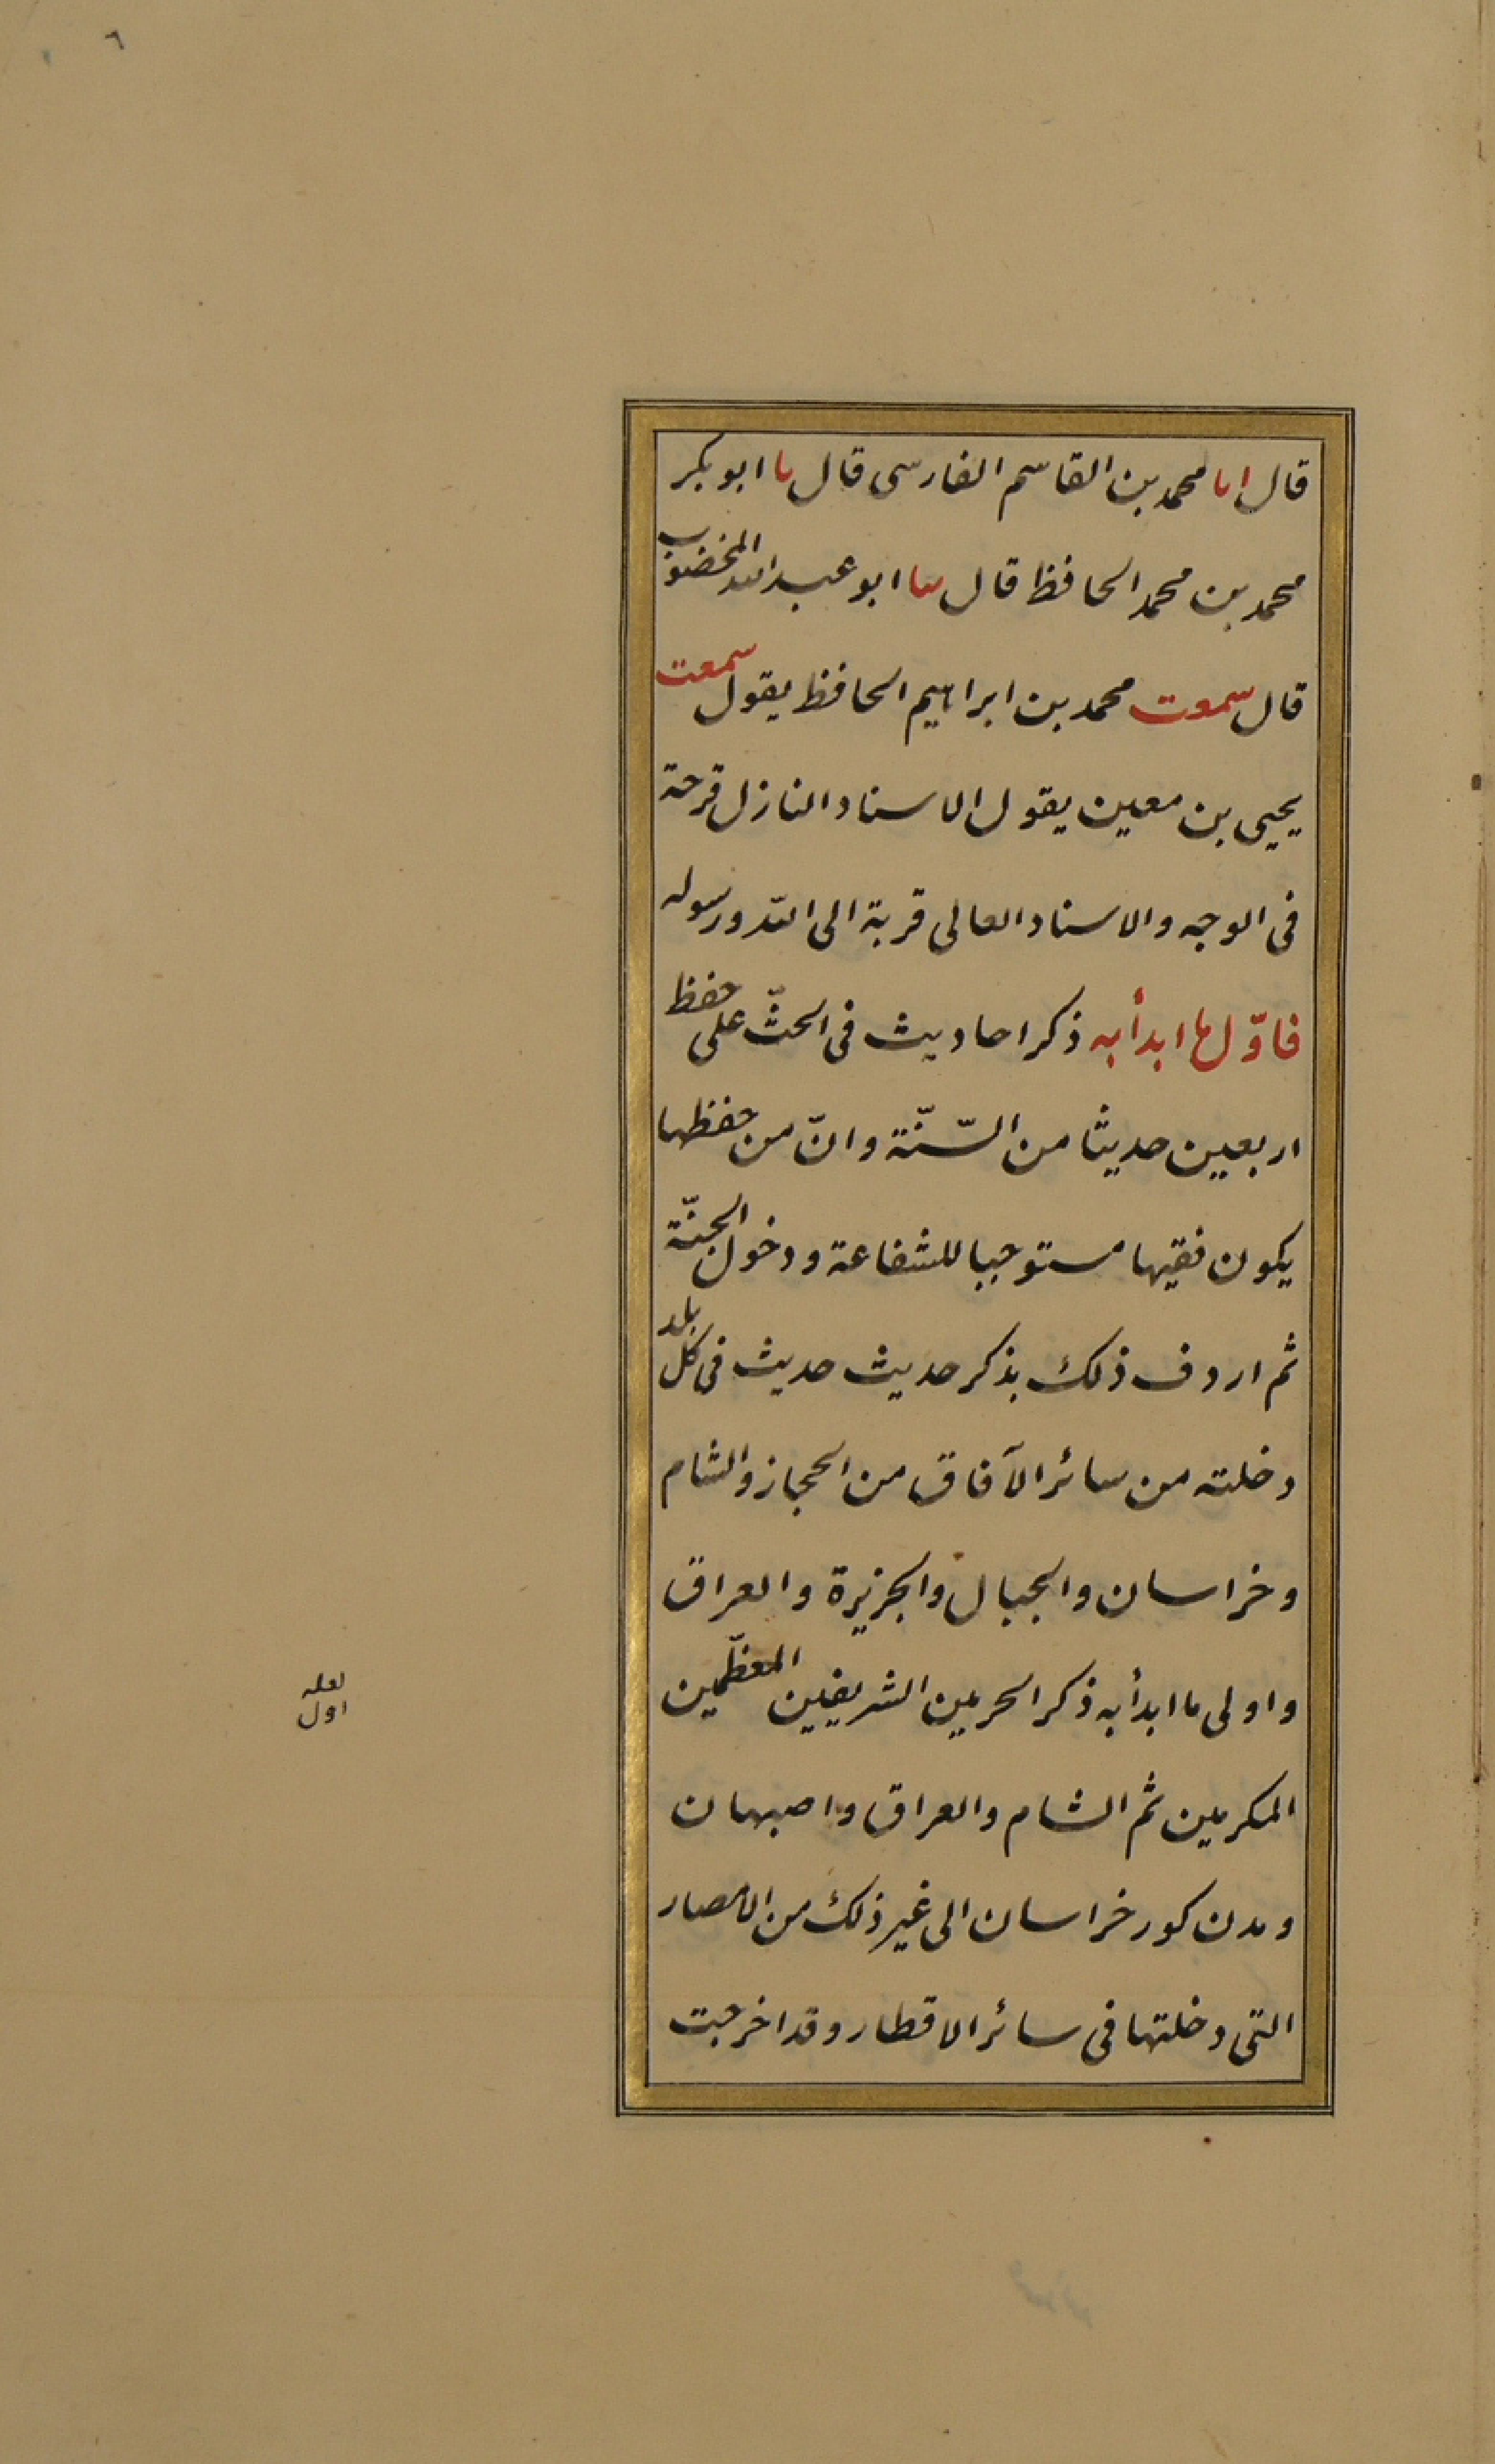 ٦
قال انا محمد بن القاسم الفارسى قال نا ابو بكر
محمد بن محمد الحافظ قال ثنا ابو عبد الله المخضوب
قال سمعت محمد بن ابراهيم الحافظ يقول سمعت
يحيى بن معين يقول الاسناد النازل قرحة
فى الوجه والاسناد العالى قربة الى الله ورسوله
فاوّل ما ابدأ به ذكر احاديث فى الحثّ على حفظ
اربعين حديثا من السّنّة وانّ من حفظها
يكون فقيها مستوجبا للشفاعة ودخول الجنّة
ثم اردف ذلك بذكر حديث حديث فى كل بلد
دخلته من سائر الآفاق من الحجاز والشام
وخراسان والجبال والجزيرة والعراق
واولى ما ابدأ به ذكر الحرمين الشريفين المعظّمين
لعله
اول
المكرمين ثم الشام والعراق واصبهان
ومدن كور خراسان الى غير ذلك من الامصار
التى دخلتها فى سائر الاقطار وقد اخرجت